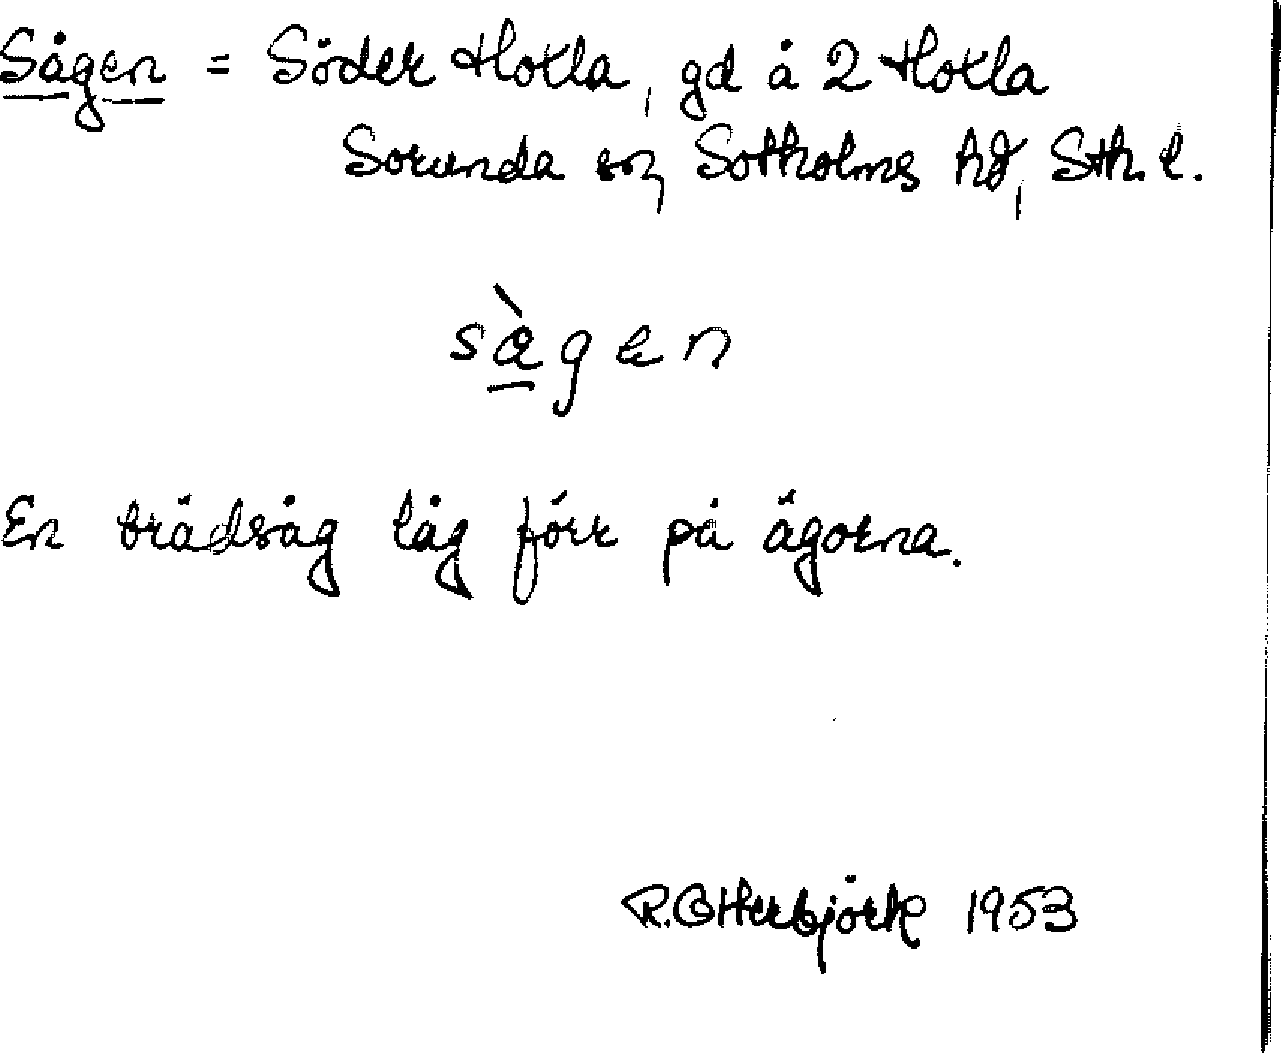 Sågen = Söder Horla, gd å 2 Horla
Sorunda sn, Sotholms hd, Sth. l.
sàgen
En brädsåg låg förr på ägorna.
R. Otterbjörk 1953